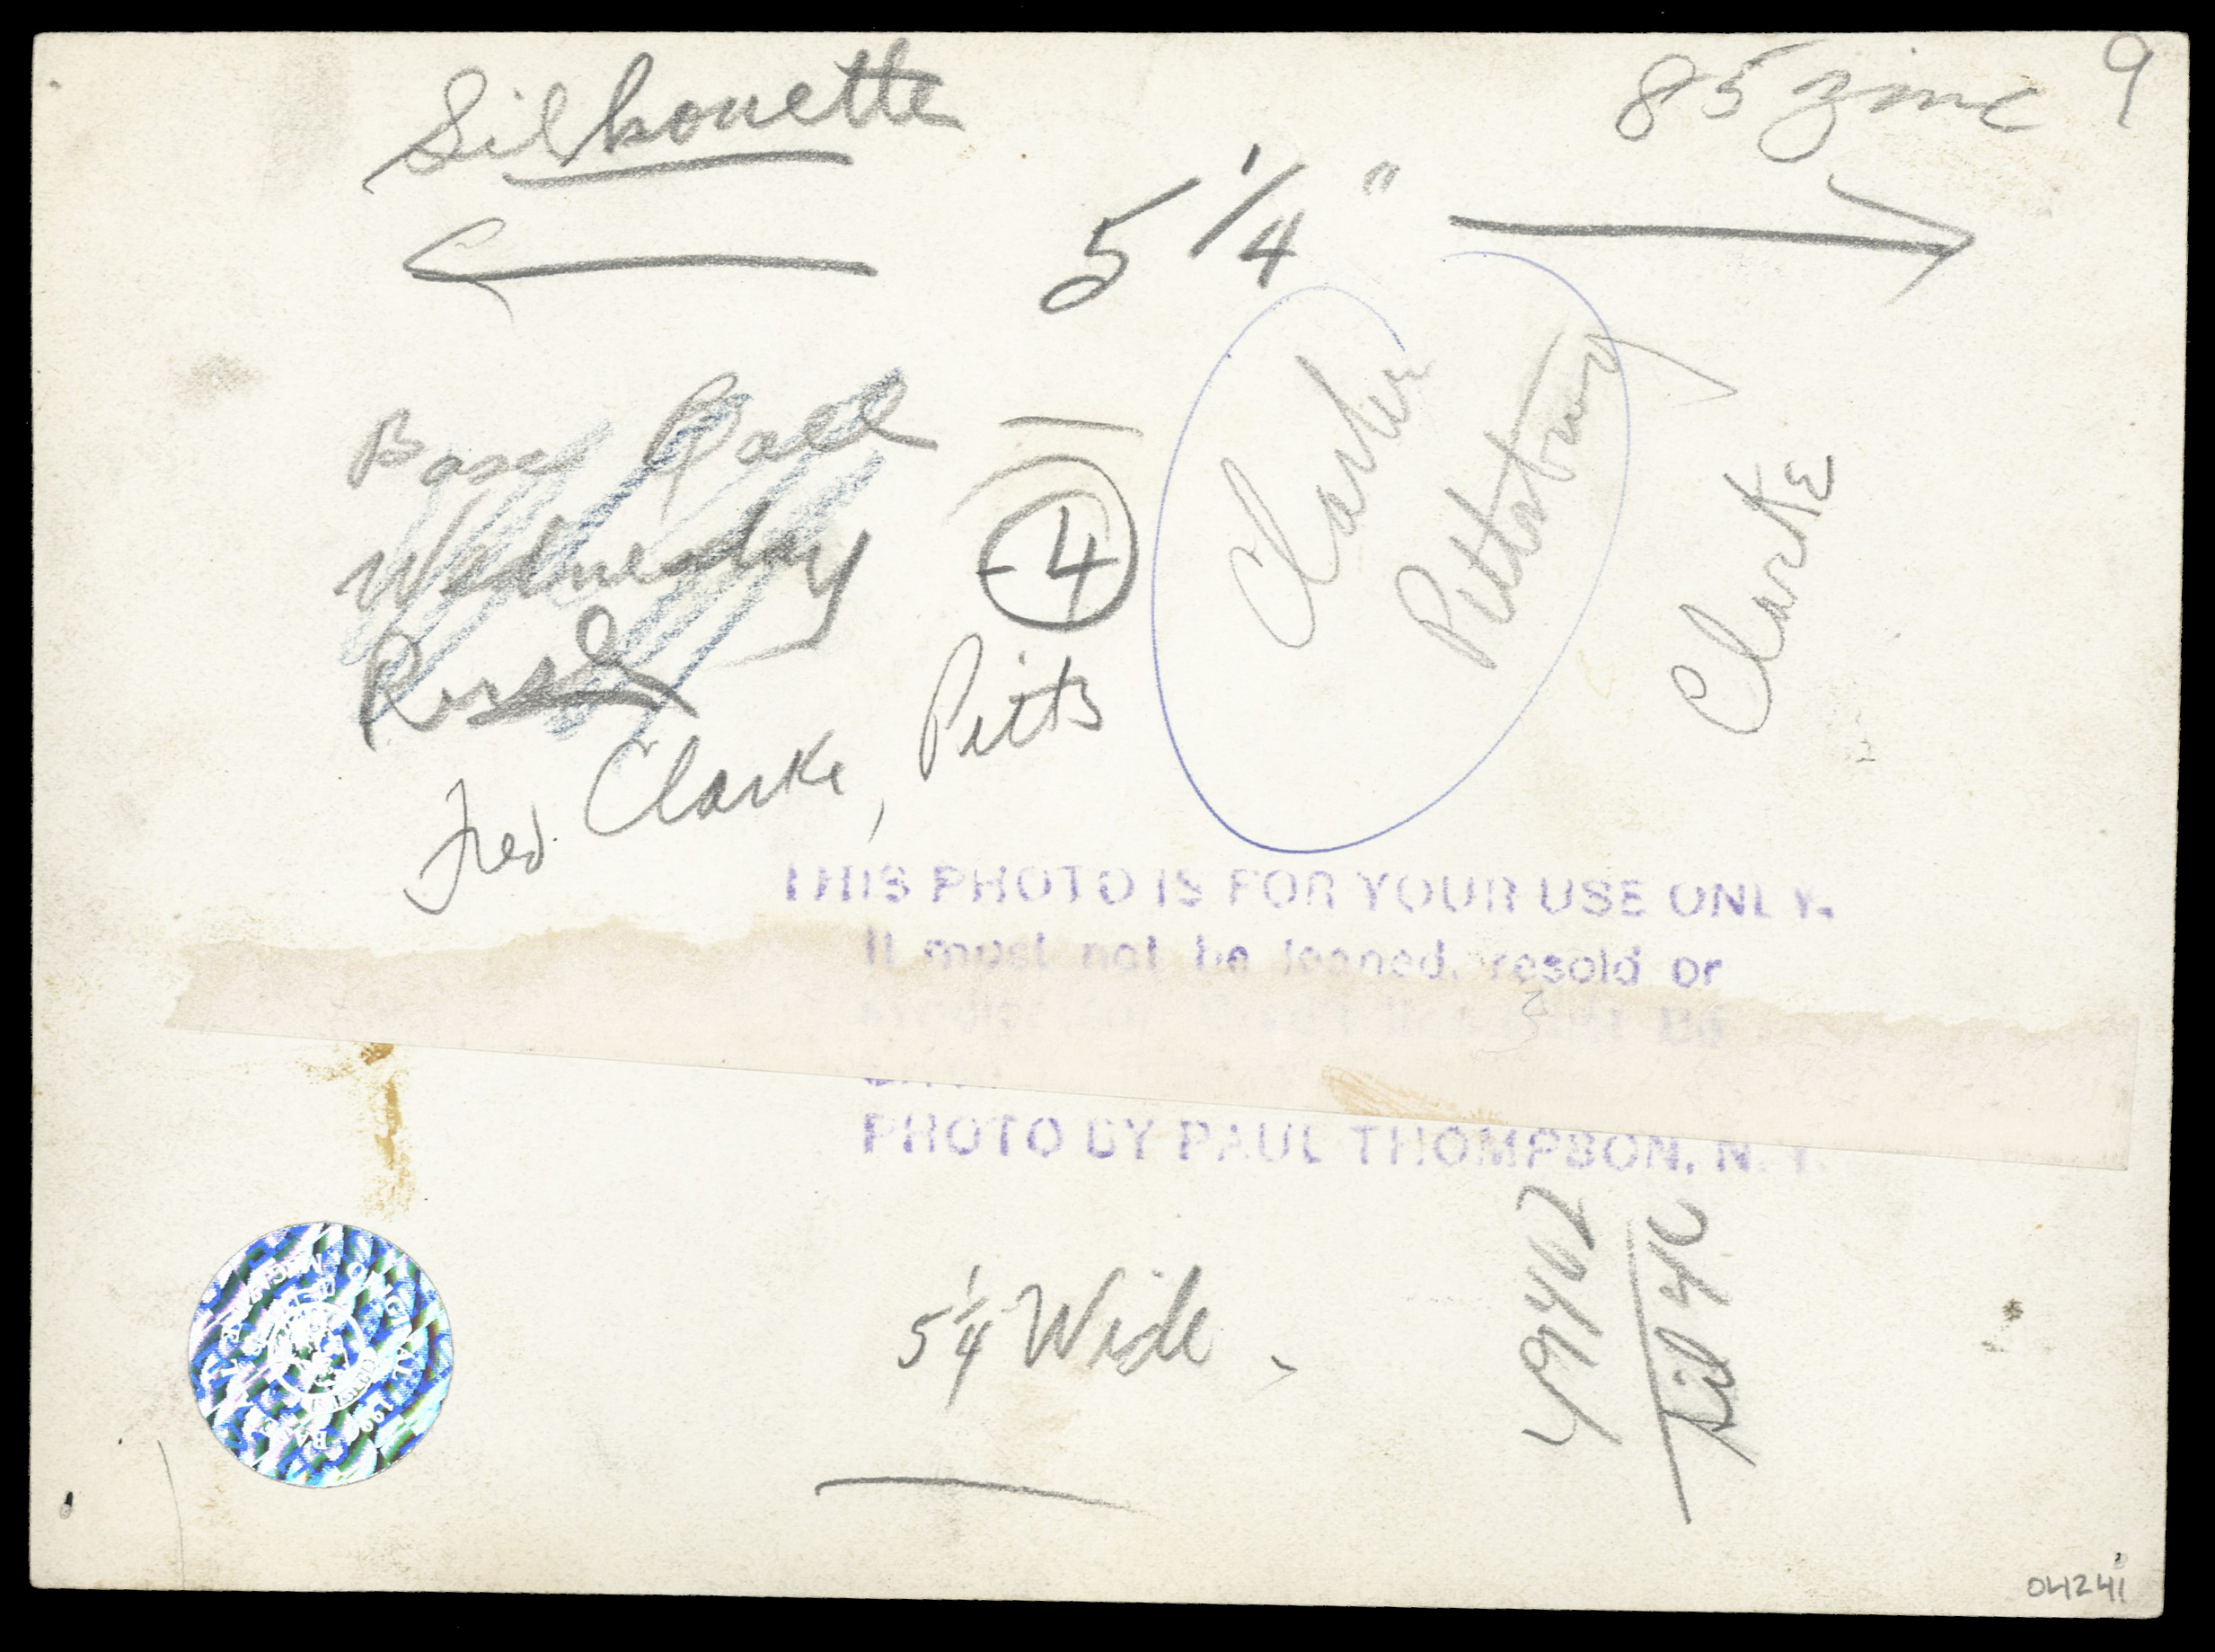 Silhouette
85 zinc 9
5 1/4"
Base Ball
Wednesday
Rush
-4
Clarke
Pittsburg
Clarke
Fred Clarke, Pitts
THIS PHOTO IS FOR YOUR USE ONLY.
It must not be loaned, resold or
PHOTO BY PAUL THOMPSON, N.Y.
5 1/4 Wide
Sil 40
04241